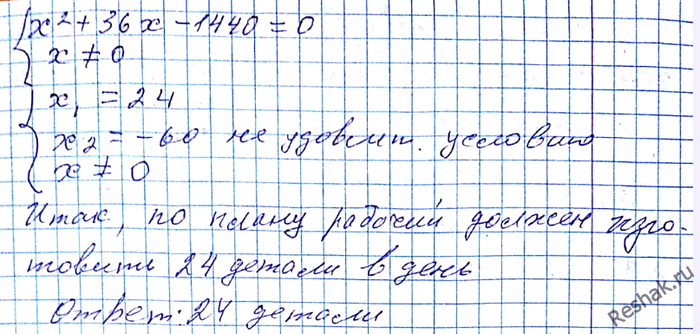 x² + 36x - 1440 = 0
x ≠ 0
x₁ = 24
x₂ = -60 не удовлет. условию
x ≠ 0
Итак, по плану рабочий должен изго-
товить 24 детали в день
Ответ: 24 детали
Reshak.ru